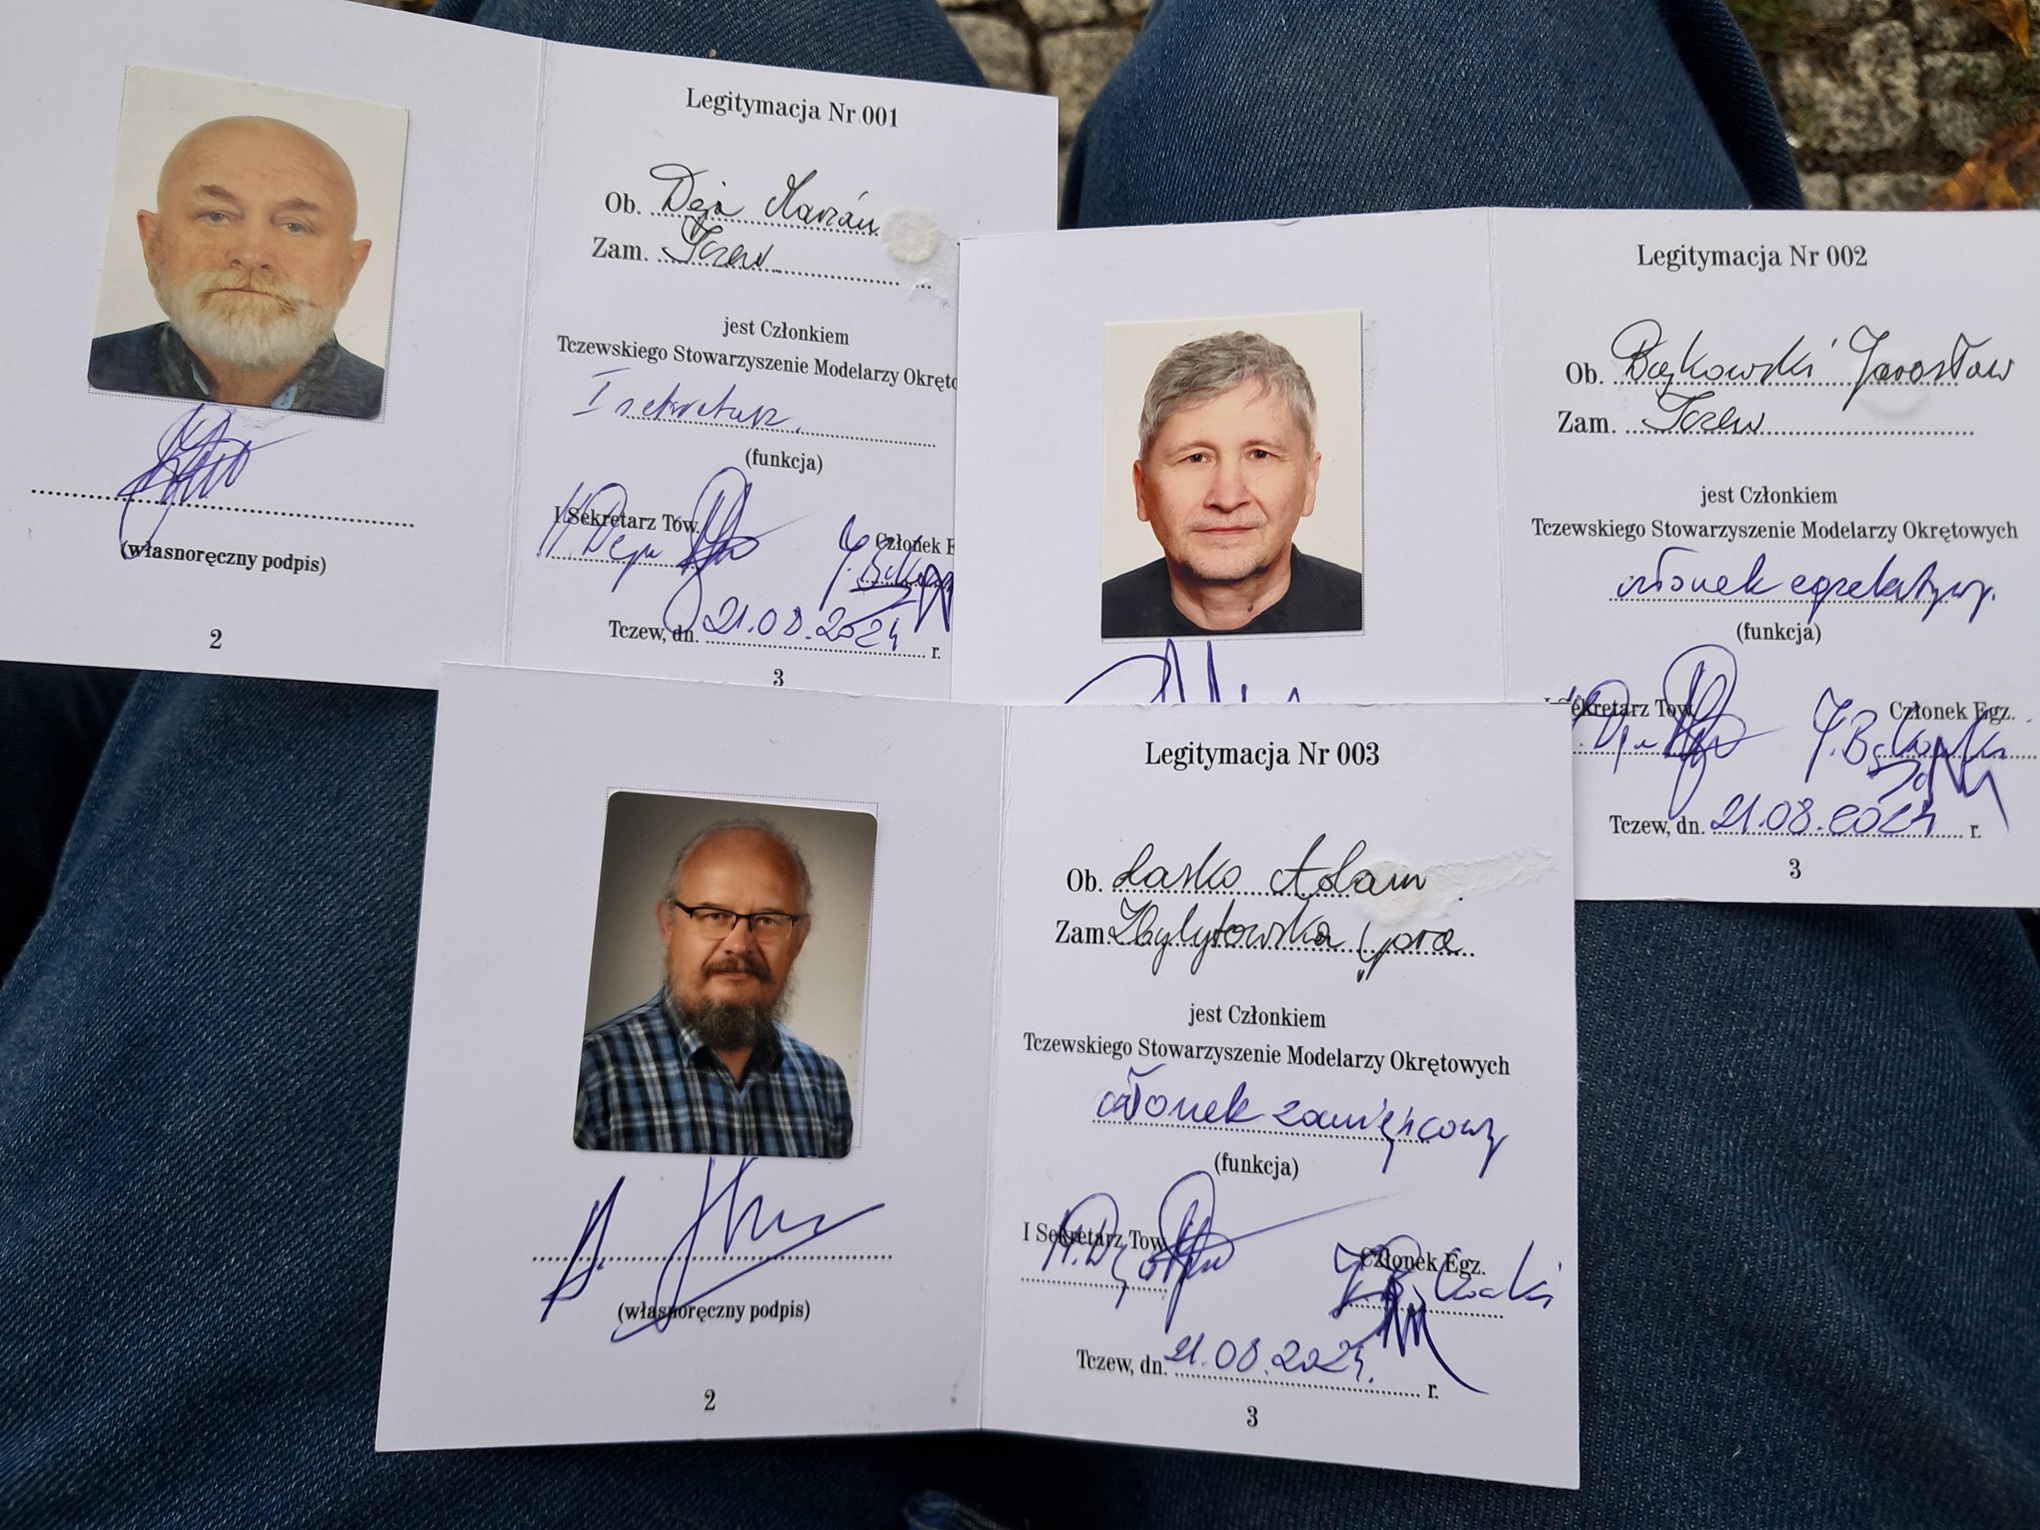 Legitymacja Nr 001
Ob. Deja Marian
Zam. Tczew
jest Członkiem
Tczewskiego Stowarzyszenie Modelarzy Okręto
I sekretarz.
(funkcja)
I Sekretarz Tow.
Członek E
M. Deja
Tczew, dn. 21.08.2024 r.
(własnoręczny podpis)
2
3
Legitymacja Nr 002
Ob. Bąkowski Jarosław
Zam. Tczew
jest Członkiem
Tczewskiego Stowarzyszenie Modelarzy Okrętowych
członek egzekutywy.
(funkcja)
Sekretarz Tow.
Członek Egz.
J. Bąkowski
Tczew, dn. 21.08.2024 r.
3
Legitymacja Nr 003
Ob. Łasko Adam
Zam. Zbylytowska Góra
jest Członkiem
Tczewskiego Stowarzyszenie Modelarzy Okrętowych
członek zamiejscowy
(funkcja)
I Sekretarz Tow.
Członek Egz.
M. Deja
J. Bąkowski
Tczew, dn. 21.08.2024. r.
(własnoręczny podpis)
2
3